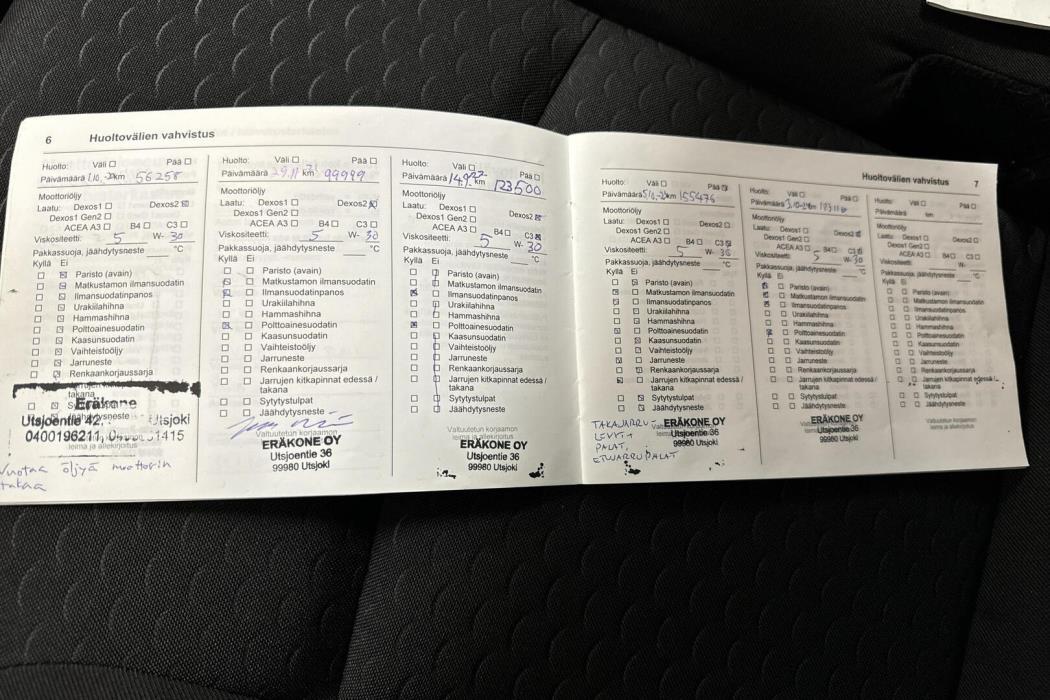 6 Huoltovälien vahvistus
Huolto: Väli Pää
Päivämäärä km 56258
Moottoriöljy
Laatu: Dexos1 Dexos2
Dexos1 Gen2
ACEA A3 B4 C3
Viskositeetti: 5 W- 30
Pakkassuoja, jäähdytysneste °C
Kyllä Ei
Paristo (avain)
Matkustamon ilmansuodatin
Ilmansuodatinpanos
Urakiilahihna
Hammashihna
Polttoainesuodatin
Kaasunsuodatin
Vaihteistoöljy
Jarruneste
Renkaankorjaussarja
takana
Eräkone
Utsjoentie 42, Utsjoki
0400196211,
leima ja allekirjoitus
Vuotaa öljyä moottorin
takaa
Huolto: Väli Pää
Päivämäärä 29.11 km 99999
Moottoriöljy
Laatu: Dexos1 Dexos2
Dexos1 Gen2
ACEA A3 B4 C3
Viskositeetti: 5 W- 30
Pakkassuoja, jäähdytysneste °C
Kyllä Ei
Paristo (avain)
Matkustamon ilmansuodatin
Ilmansuodatinpanos
Urakiilahihna
Hammashihna
Polttoainesuodatin
Kaasunsuodatin
Vaihteistoöljy
Jarruneste
Renkaankorjaussarja
Jarrujen kitkapinnat edessä /
takana
Sytytystulpat
Jäähdytysneste
Valtuutetun korjaamon
ERÄKONE OY
Utsjoentie 36
99980 Utsjoki
Huolto: Väli Pää
Päivämäärä 14.9.22 km 123500
Moottoriöljy
Laatu: Dexos1 Dexos2
Dexos1 Gen2
ACEA A3 B4 C3
Viskositeetti: 5 W- 30
Pakkassuoja, jäähdytysneste °C
Kyllä Ei
Paristo (avain)
Matkustamon ilmansuodatin
Ilmansuodatinpanos
Urakiilahihna
Hammashihna
Polttoainesuodatin
Kaasunsuodatin
Vaihteistoöljy
Jarruneste
Renkaankorjaussarja
Jarrujen kitkapinnat edessä /
takana
Sytytystulpat
Jäähdytysneste
Valtuutetun korjaamon
leima ja allekirjoitus
ERÄKONE OY
Utsjoentie 36
99980 Utsjoki
Huoltovälien vahvistus 7
Huolto: Väli Pää
Päivämäärä km 155476
Moottoriöljy
Laatu: Dexos1 Dexos2
Dexos1 Gen2
ACEA A3 B4 C3
Viskositeetti: 5 W- 30
Pakkassuoja, jäähdytysneste °C
Kyllä Ei
Paristo (avain)
Matkustamon ilmansuodatin
Ilmansuodatinpanos
Urakiilahihna
Hammashihna
Polttoainesuodatin
Kaasunsuodatin
Vaihteistoöljy
Jarruneste
Renkaankorjaussarja
Jarrujen kitkapinnat edessä /
takana
Sytytystulpat
Jäähdytysneste
TAKAJARRU
LEVYT+
PALAT,
ETUJARRUPALAT
ERÄKONE OY
Utsjoentie 36
99980 Utsjoki
Huolto: Väli Pää
Päivämäärä km
Moottoriöljy
Laatu: Dexos1 Dexos2
Dexos1 Gen2
ACEA A3 B4 C3
Viskositeetti: 5 W- 30
Pakkassuoja, jäähdytysneste °C
Kyllä Ei
Paristo (avain)
Matkustamon ilmansuodatin
Ilmansuodatinpanos
Urakiilahihna
Hammashihna
Polttoainesuodatin
Kaasunsuodatin
Vaihteistoöljy
Jarruneste
Renkaankorjaussarja
Jarrujen kitkapinnat edessä /
takana
Sytytystulpat
Jäähdytysneste
ERÄKONE OY
Utsjoentie 36
99980 Utsjoki
Huolto: Väli Pää
Päivämäärä km
Moottoriöljy
Laatu: Dexos1 Dexos2
Dexos1 Gen2
ACEA A3 B4 C3
Viskositeetti: W-
Pakkassuoja, jäähdytysneste °C
Kyllä Ei
Paristo (avain)
Matkustamon ilmansuodatin
Ilmansuodatinpanos
Urakiilahihna
Hammashihna
Polttoainesuodatin
Kaasunsuodatin
Vaihteistoöljy
Jarruneste
Renkaankorjaussarja
Jarrujen kitkapinnat edessä /
takana
Sytytystulpat
Jäähdytysneste
Valtuutetun korjaamon
leima ja allekirjoitus